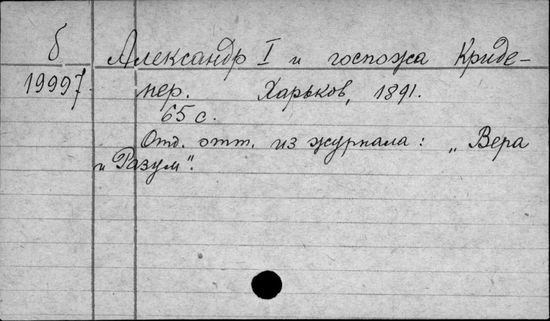 б Александр I и госпожа Криде-
19997. нер. Харьков, 1891.
65 с.
Отд. отт. из журнала: „Вера
и Разум".